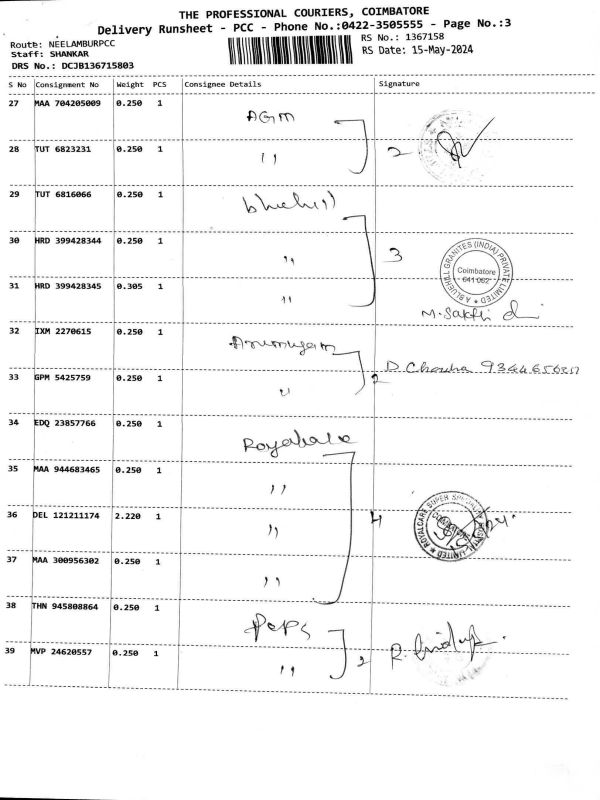 THE PROFESSIONAL COURIERS, COIMBATORE
Delivery Runsheet - PCC - Phone No.:0422-3505555 - Page No.:3
Route: NEELAMBURPCC
Staff: SHANKAR
DRS No.: DCJB136715803
RS No.: 1367158
RS Date: 15-May-2024
S No Consignment No Weight PCS Consignee Details Signature
27 MAA 704205009 0.250 1 AGM
28 TUT 6823231 0.250 1 '' 2
29 TUT 6816066 0.250 1 bluehill
30 HRD 399428344 0.250 1 '' 3
A BLUEHILL GRANITES (INDIA) PRIVATE LIMITED
Coimbatore
641 062
31 HRD 399428345 0.305 1 ''
M. Sakthi
32 IXM 2270615 0.250 1 Arumugam
33 GPM 5425759 0.250 1 '' 2 D.
34 EDQ 23857766 0.250 1
35 MAA 944683465 0.250 1 ''
36 DEL 121211174 2.220 1 '' 4
ROYALCARE SUPER SPECIALITY HOSPITAL LIMITED
COIMBATORE
37 MAA 300956302 0.250 1 ''
38 THN 945808864 0.250 1 Peps
39 MVP 24620557 0.250 1 '' 2 R.